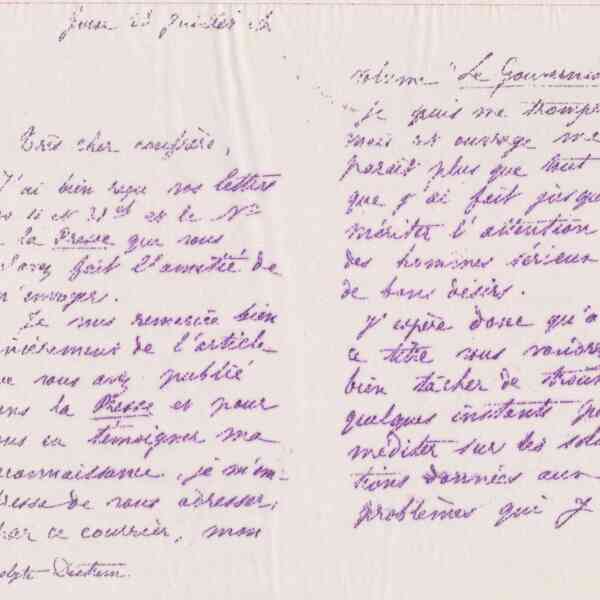 Très cher confrère,
J'ai bien reçu vos lettres
et le Nº
la Presse que vous
m'avez fait l'amitié de
m'envoyer.
Je vous remercie bien
sincèrement de l'article
que vous avez publié
dans la Presse et pour
vous en témoigner ma
reconnaissance, je m'em-
presse de vous adresser,
par ce courrier, mon
volume "Le Gouverne
je puis me trompe
mais cet ouvrage me
paraît plus que tout
que j'ai fait jusqu
mériter l'attention
des hommes sérieux
de bons desirs.
J'espère donc qu'a
ce titre vous voudre
bien tâcher de trouv
quelques instants po
méditer sur les solu
tions données aux
problèmes qui y